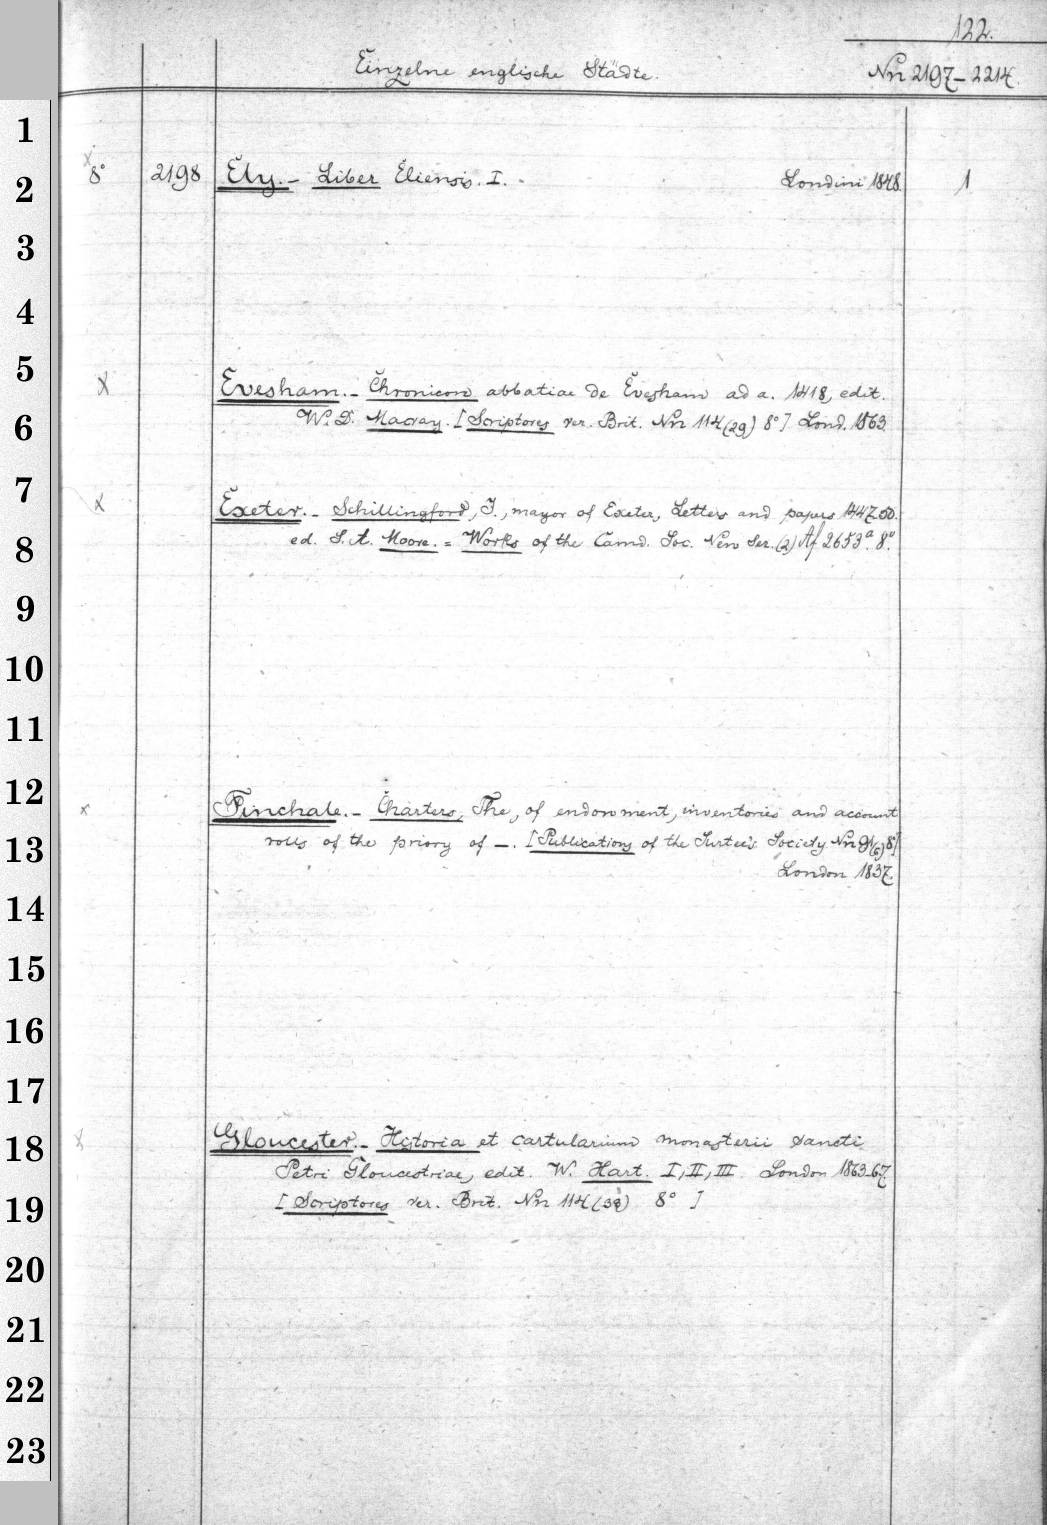 122.
Einzelne englische Städte. Nn 2197-2214.
1
x
2 8° 2198 Ely. - Liber Eliensis. I. - Londini 1848. 1
3
4
5 x Evesham. - Chronicon abbatiae de Evesham ad a. 1418, edit.
6 W. D. Macray. [Scriptores rer. Brit. Nn 114(29) 8°] Lond. 1863.
7 x Exeter. - Schillingford, J., mayor of Exeter, Letters and papers 1447-50.
8 ed. S. A. Moore. = Works of the Camd. Soc. New Ser. (2) Af 2653ª. 8°.
9
10
11
12 x Finchale. - Charters, The, of endowment, inventories and account
13 rolls of the priory of -. [Publications of the Surtees Society. Nn (6) 8°]
London 1837.
14
15
16
17
18 x Gloucester. - Historia et cartularium monasterii Sancti
Petri Gloucestriae, edit. W. Hart. I, II, III. London 1863-67.
19 [Scriptores rer. Brit. Nn 114 8° ]
20
21
22
23